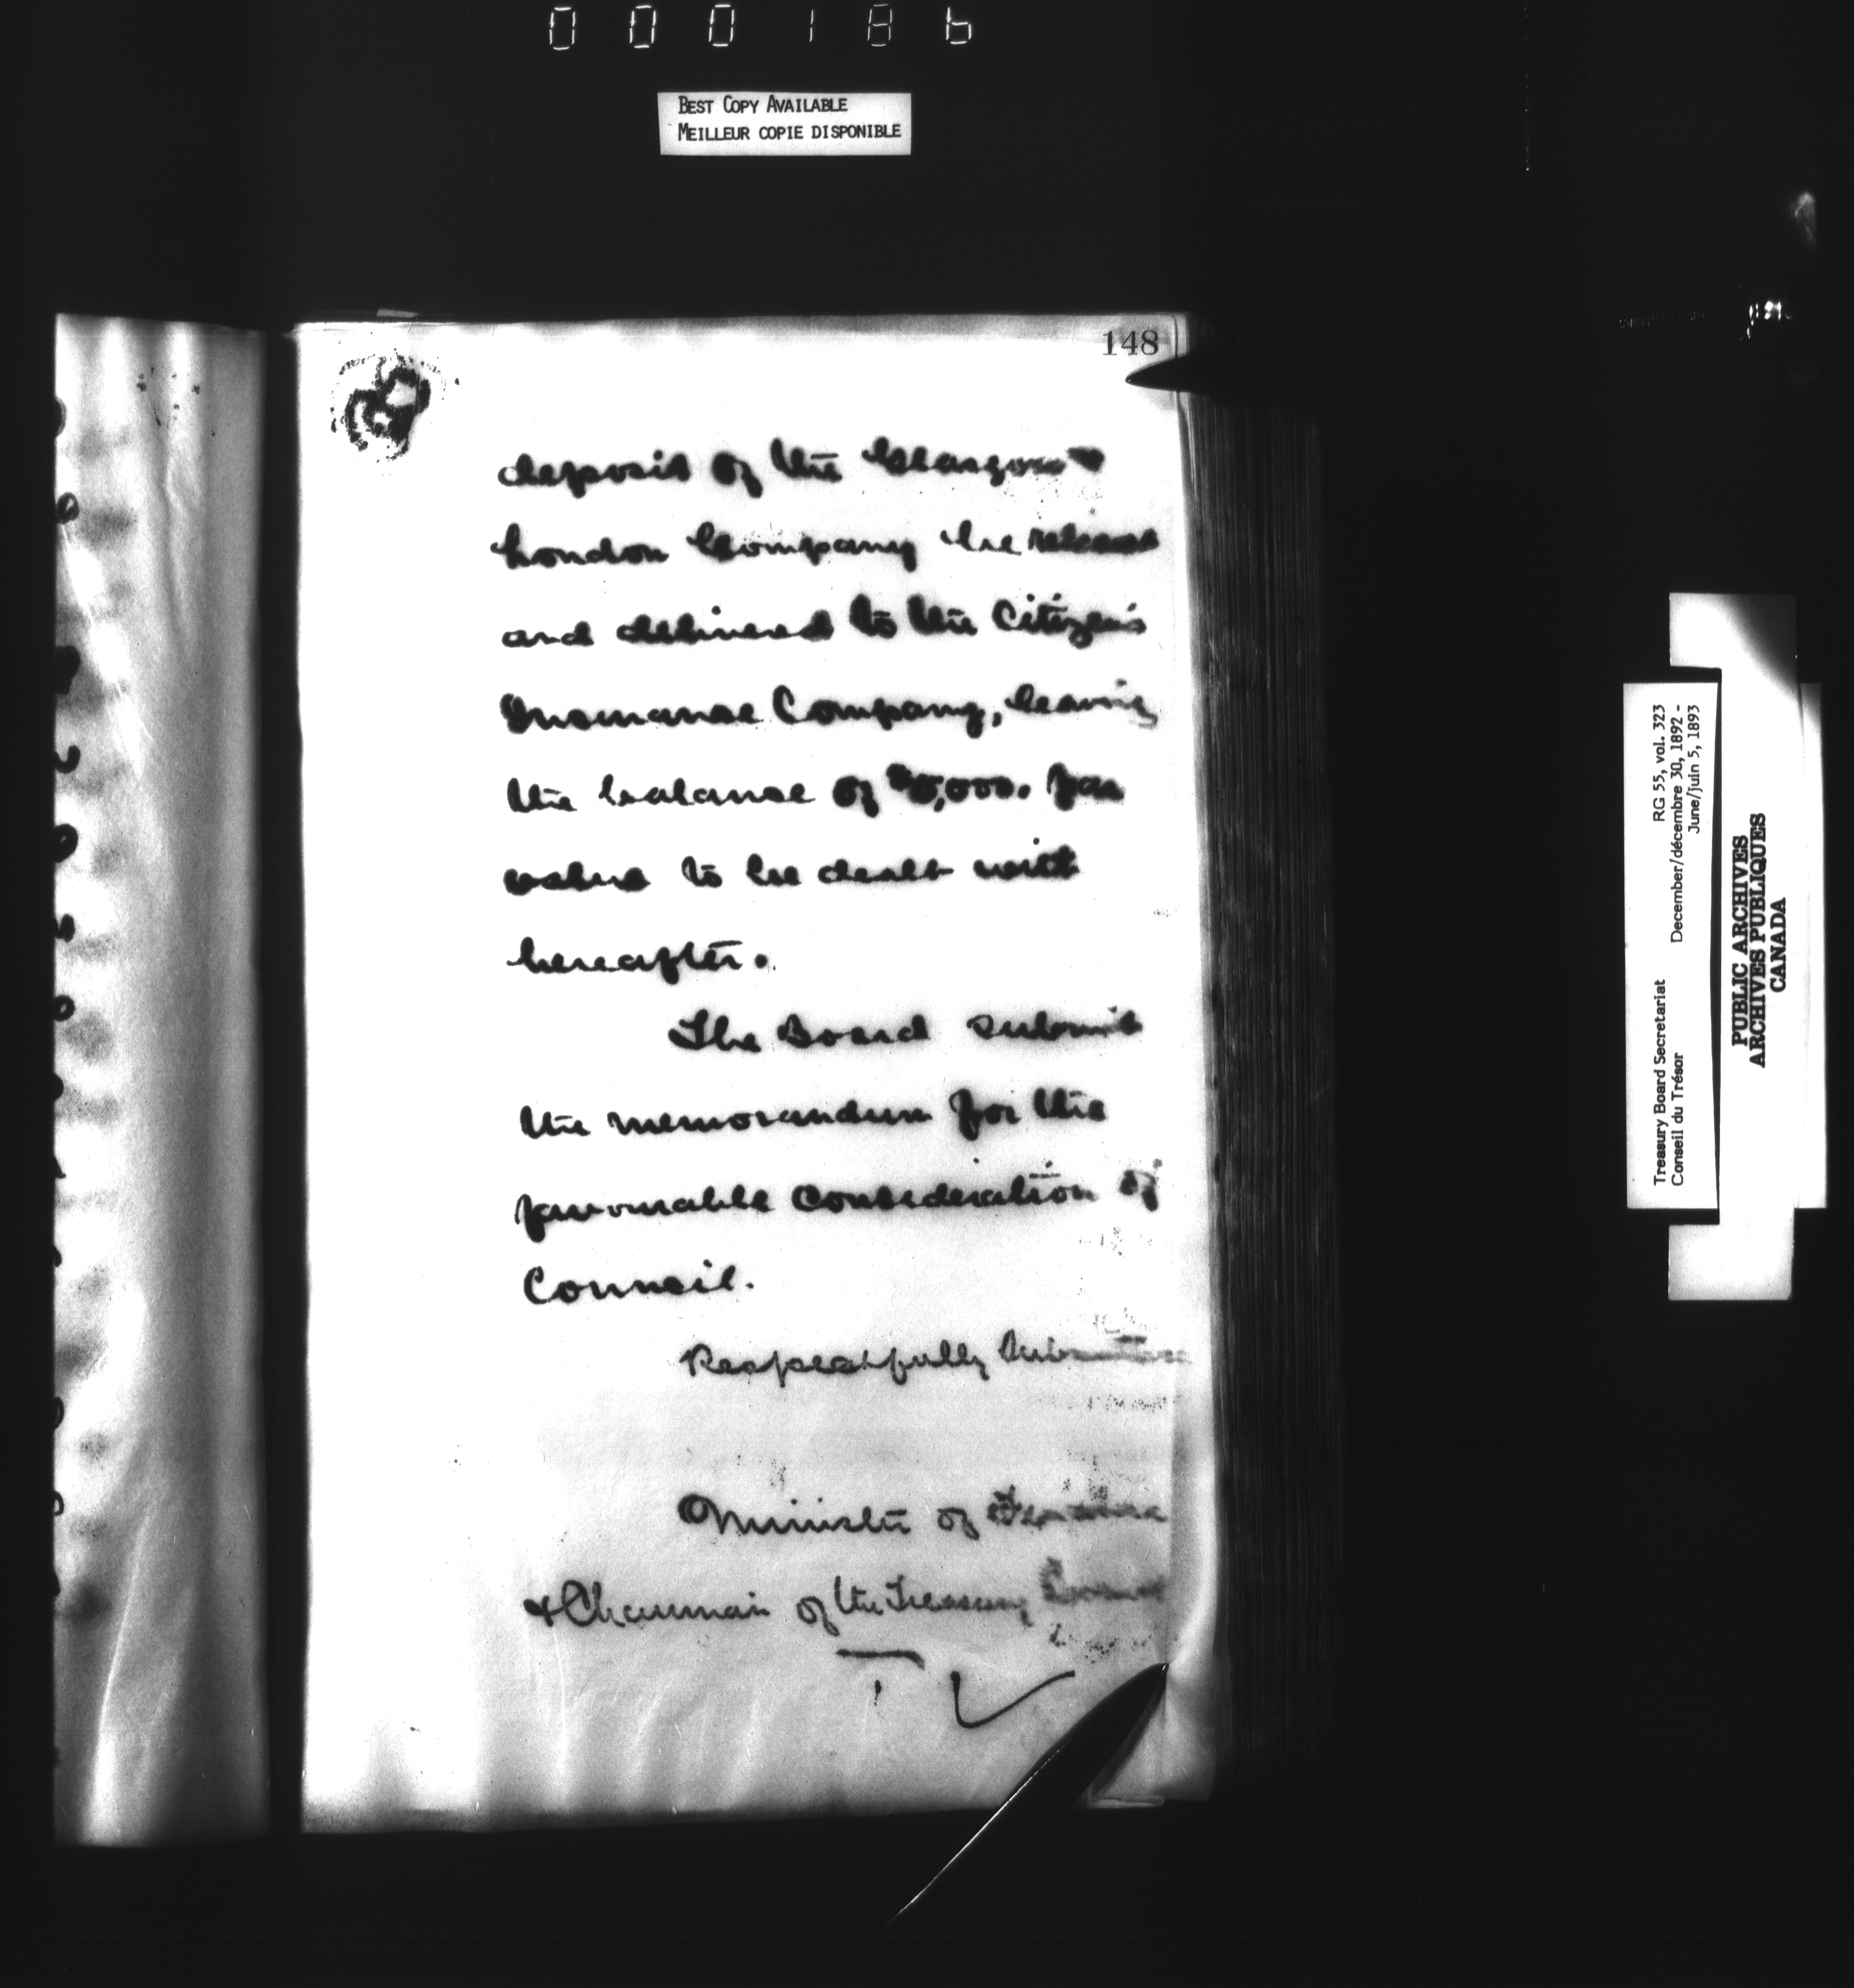 000186
BEST COPY AVAILABLE
MEILLEUR COPIE DISPONIBLE
148
deposit of the Glasgow &
London Company be released
and delivered to the Citizen's
Insurance Company, leaving
the balance of par
value to be dealt with
hereafter.
The Board submit
the memorandum for the
favourable consideration of
Council.
Respectfully submitted
Minister of Finance
& Chairman of the Treasury Board
Treasury Board Secretariat RG 55, vol. 323
Conseil du Trésor December/décembre 30, 1892 -
June/juin 5, 1893
PUBLIC ARCHIVES
ARCHIVES PUBLIQUES
CANADA